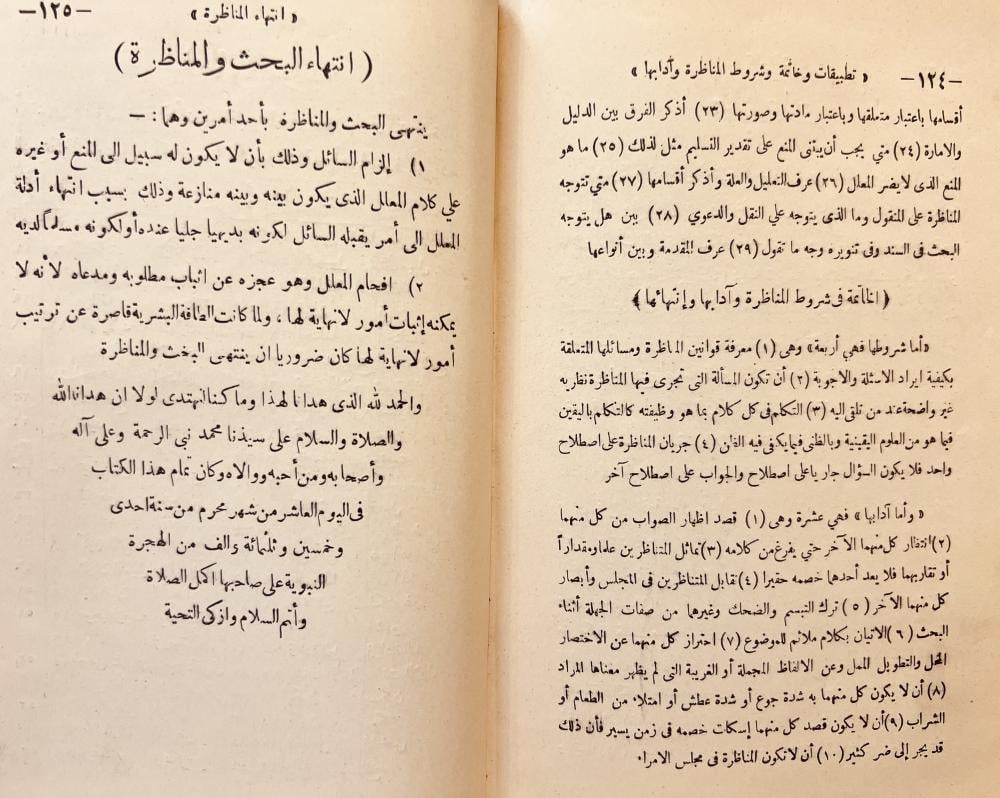 « تطبيقات وخاتمة وشروط المناظرة وآدابها » —١٢٤—
أقسامها باعتبار متعلقها وباعتبار مادتها وصورتها (٢٣) أذكر الفرق بين الدليل
والامارة (٢٤) متي يجب أن يبتنى المنع على تقدير التسليم مثل لذلك (٢٥) ما هو
المنع الذى لايضر المعلل (٢٦) عرف التعليل والعلة وأذكر أقسامها (٢٧) متي تتوجه
المناظرة على المنقول وما الذى يتوجه علي النقل والدعوي (٢٨) بين هل يتوجه
البحث فى السند وفى تنويره وجه ما تقول (٢٩) عرف المقدمة وبين أنواعها
﴿ الخاتمة فى شروط المناظرة وآدابها وإنتهائها ﴾
«أما شروطها فهي أربعة» وهى (١) معرفة قوانين المناظرة ومسائلها المتعلقة
بكيفية ايراد الاسئلة والاجوبة (٢) أن تكون المسألة التى تجرى فيها المناظرة نظريه
غير واضحة عند من تلقى اليه (٣) التكلم فى كل كلام بما هو وظيفته كالتكلم باليقين
فيما هو من العلوم اليقينية وبالظنى فيما يكفى فيه الظن (٤) جريان المناظرة على اصطلاح
واحد فلا يكون السؤال جاريا على اصطلاح والجواب على اصطلاح آخر
« وأما آدابها » فهي عشرة وهى (١) قصد اظهار الصواب من كل منهما
(٢) انتظار كل منهما الآخر حتي يفرغ من كلامه (٣) تماثل المتناظرين علما ومقداراً
أو تقاربهما فلا يعد أحدهما خصمه حقيرا (٤) تقابل المتناظرين فى المجلس وأبصار
كل منهما الآخر (٥) ترك التبسم والضحك وغيرهما من صفات الجهلة أثناء
البحث (٦) الاتيان بكلام ملائم للموضوع (٧) احتراز كل منهما عن الاختصار
المخل والتطويل الممل وعن الالفاظ المجملة أو الغريبة التى لم يظهر معناها المراد
(٨) أن لا يكون كل منهما به شدة جوع أو شدة عطش أو امتلاء من الطعام أو
الشراب (٩) أن لا يكون قصد كل منهما إسكات خصمه فى زمن يسير فأن ذلك
قد يجر إلى ضر كثير (١٠) أن لا تكون المناظرة فى مجلس الامراء
« انتهاء المناظرة » —١٢٥—
( انتهاء البحث والمناظرة )
ينتهى البحث والمناظرة بأحد أمرين وهما : —
١) إلزام السائل وذلك بأن لا يكون له سبيل الى المنع أو غيره
علي كلام المعلل الذى يكون بينه وبينه منازعة وذلك بسبب انتهاء أدلة
المعلل الى أمر يقبله السائل لكونه بديهيا جليا عنده أو لكونه مسلماً لديه
٢) افحام المعلل وهو عجزه عن اثبات مطلوبه ومدعاه لأنه لا
يمكنه إثبات أمور لانهاية لها ، ولما كانت الطاقة البشرية قاصرة عن ترتيب
أمور لانهاية لها كان ضروريا ان ينتهى البحث والمناظرة
والحمد لله الذى هدانا لهذا وما كنا لنهتدى لولا ان هدانا الله
والصلاة والسلام على سيدنا محمد نبي الرحمة وعلى آله
وأصحابه ومن أحبه ووالاه وكان تمام هذا الكتاب
فى اليوم العاشر من شهر محرم من سنة احدى
وخمسين وثلثمائة والف من الهجرة
النبوية على صاحبها اكمل الصلاة
وأتم السلام وازكى التحية